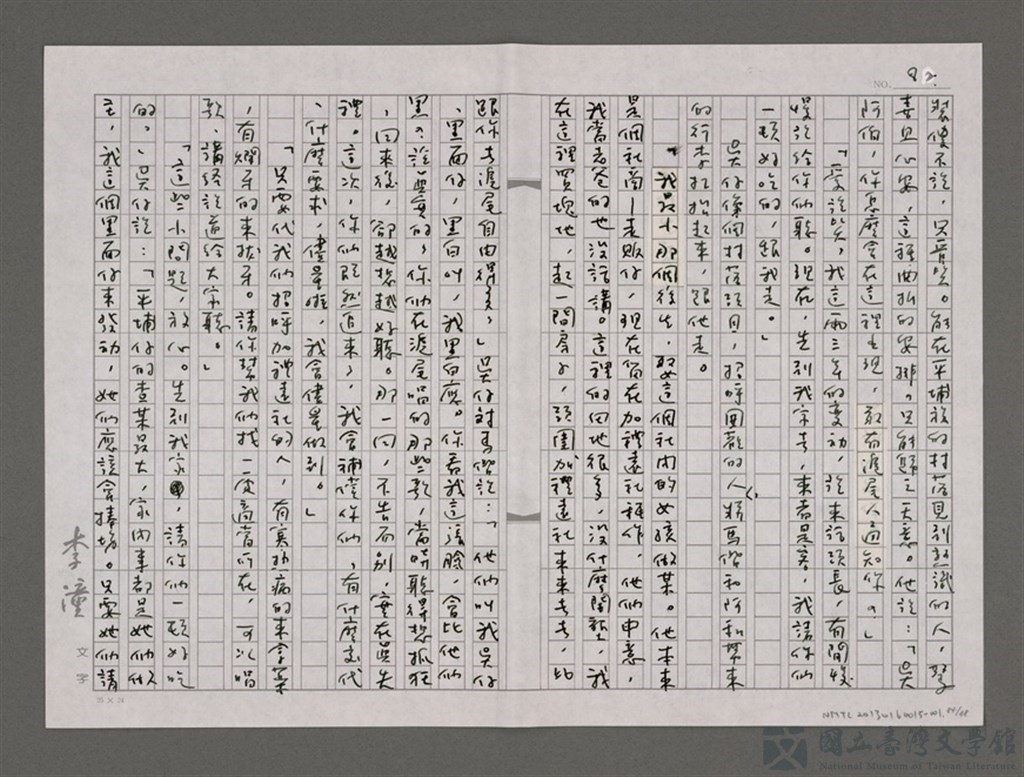 NO. 82.
裝傻不說，只管笑。能在平埔族的村落見到熟識的人，驚
喜見心安，這種曲折的安排，只能歸之天意。他說：「吳
阿伯，你怎麼會在這裡出現，敢有滬尾人通知你？」
「實說笑，我這兩三年的變動，說來話頭長，有閒慢
慢說給你們聽。現在，先到我家去，來者是客，我請你們
一頓好吃的，跟我走。」
吳仔像個村落頭目，招呼圍觀的人，將馬偕和阿和帶來
的行李扛抬起來，跟他走。
「我最小那個後生，娶這個社內的女孩做某。他本來
是個社商—走販仔，現在留在加禮遠社種作，他們中意，
我當老爸的也沒話講。這裡的田地很多，沒什麼開墾，我
在這裡買塊地，起一間房子，頭圍加禮遠社來來去去，比
跟你去滬尾自由得多，」吳仔對馬偕說：「他們叫我吳仔
、黑面仔，黑白叫，我黑白應。你看我這張臉，會比他們
黑？說無實的，你們在滬尾唱的那些歌，當時聽得想抓狂
，回來後，卻越想越好聽。那一回，不告而別，實在是失
禮。這次，你們既然追來了，我會補償你們，有什麼交代
、什麼要求，儘量啦，我會儘量做到。」
「只要代我們招呼加禮遠社的人，有寒熱病的來拿藥
，有爛牙的來拔牙。請你幫我們找一處適當所在，可以唱
歌、講經說道給大家聽。」
「這些小問題，放心。先到我家，請你們一頓好吃
的，」吳仔說：「平埔仔的查某最大，家內事都是她們做
主，我這個黑面仔來發動，她們應該會捧場。只要她們請
李潼
文字
25 × 24
NMTL 20130160015-001, 84/88
國立臺灣文學館
National Museum of Taiwan Literature